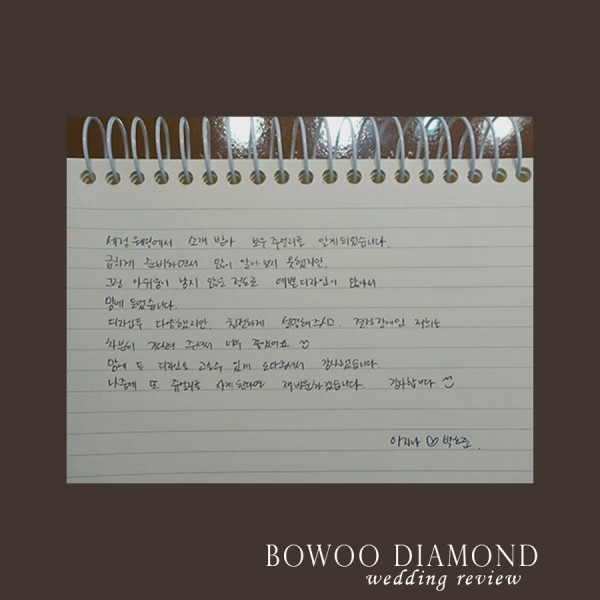 세정 웨딩에서 소개 받아 보우 주얼리를 알게되었습니다.
급하게 준비하면서 많이 알아보지 못했지만,
그런 아쉬움이 남지 않을 정도로 예쁜디자인이 많아서
맘에 들었습니다.
디자인도 다양했지만, 친절하게 설명해주시고, 결정장애인 저희를
차분히 기다려 주셔서 너무 좋았어요
맘에 든 디자인으로 고를수 있게 도와주셔서 감사했습니다.
나중에 또 쥬얼리를 사게 된다면 재방문하겠습니다. 감사합니다
♡
BOWOO DIAMOND
wedding review